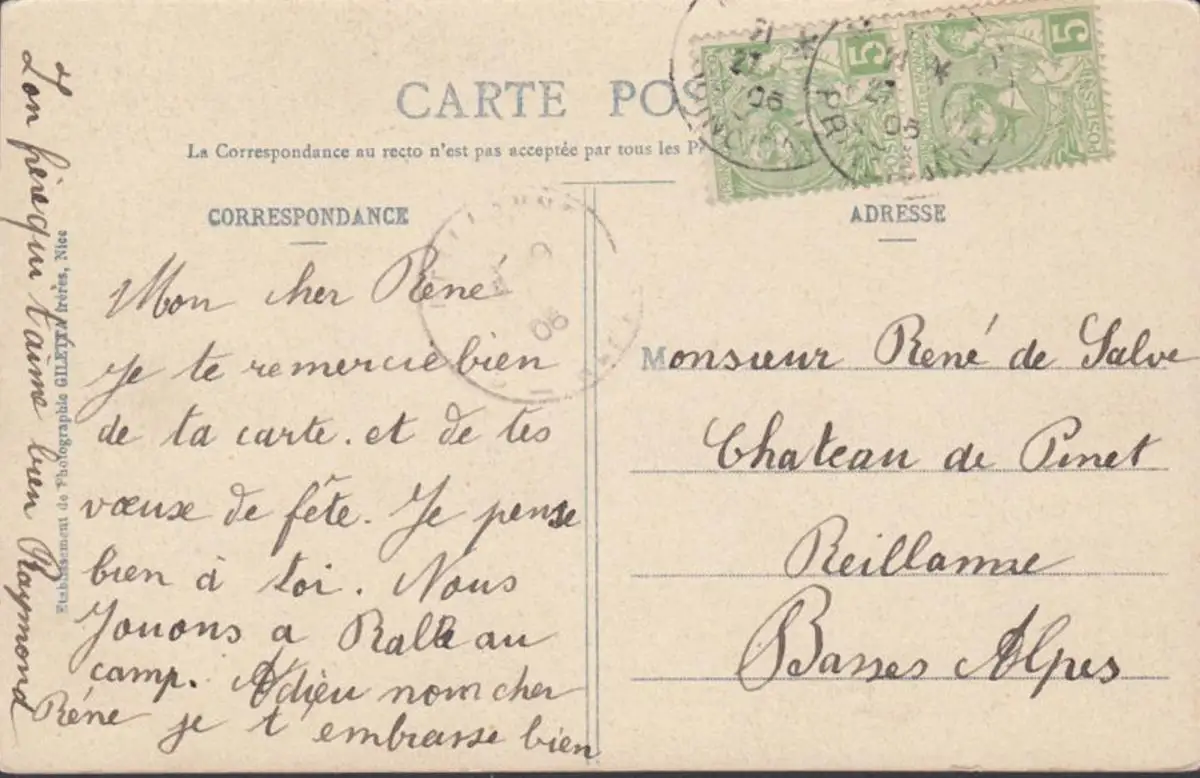 CARTE POS
La Correspondance au recto n'est pas acceptée par tous les P
CORRESPONDANCE
Mon cher René
Je te remercie bien
de ta carte. et de tes
vœuse de fête. Je pense
bien à toi. Nous
Jouons a Ralle au
camp. Adieu nom cher
Réne je t embrasse bien
Ton frère qui t'aime bien Raymond
Etablissement de Photographie GILETTA frères, Nice
5
5
POSTES
06
06
06
ADRESSE
Monsieur René de Salve
Chateau de Pinet
Reillanne
Basses Alpes